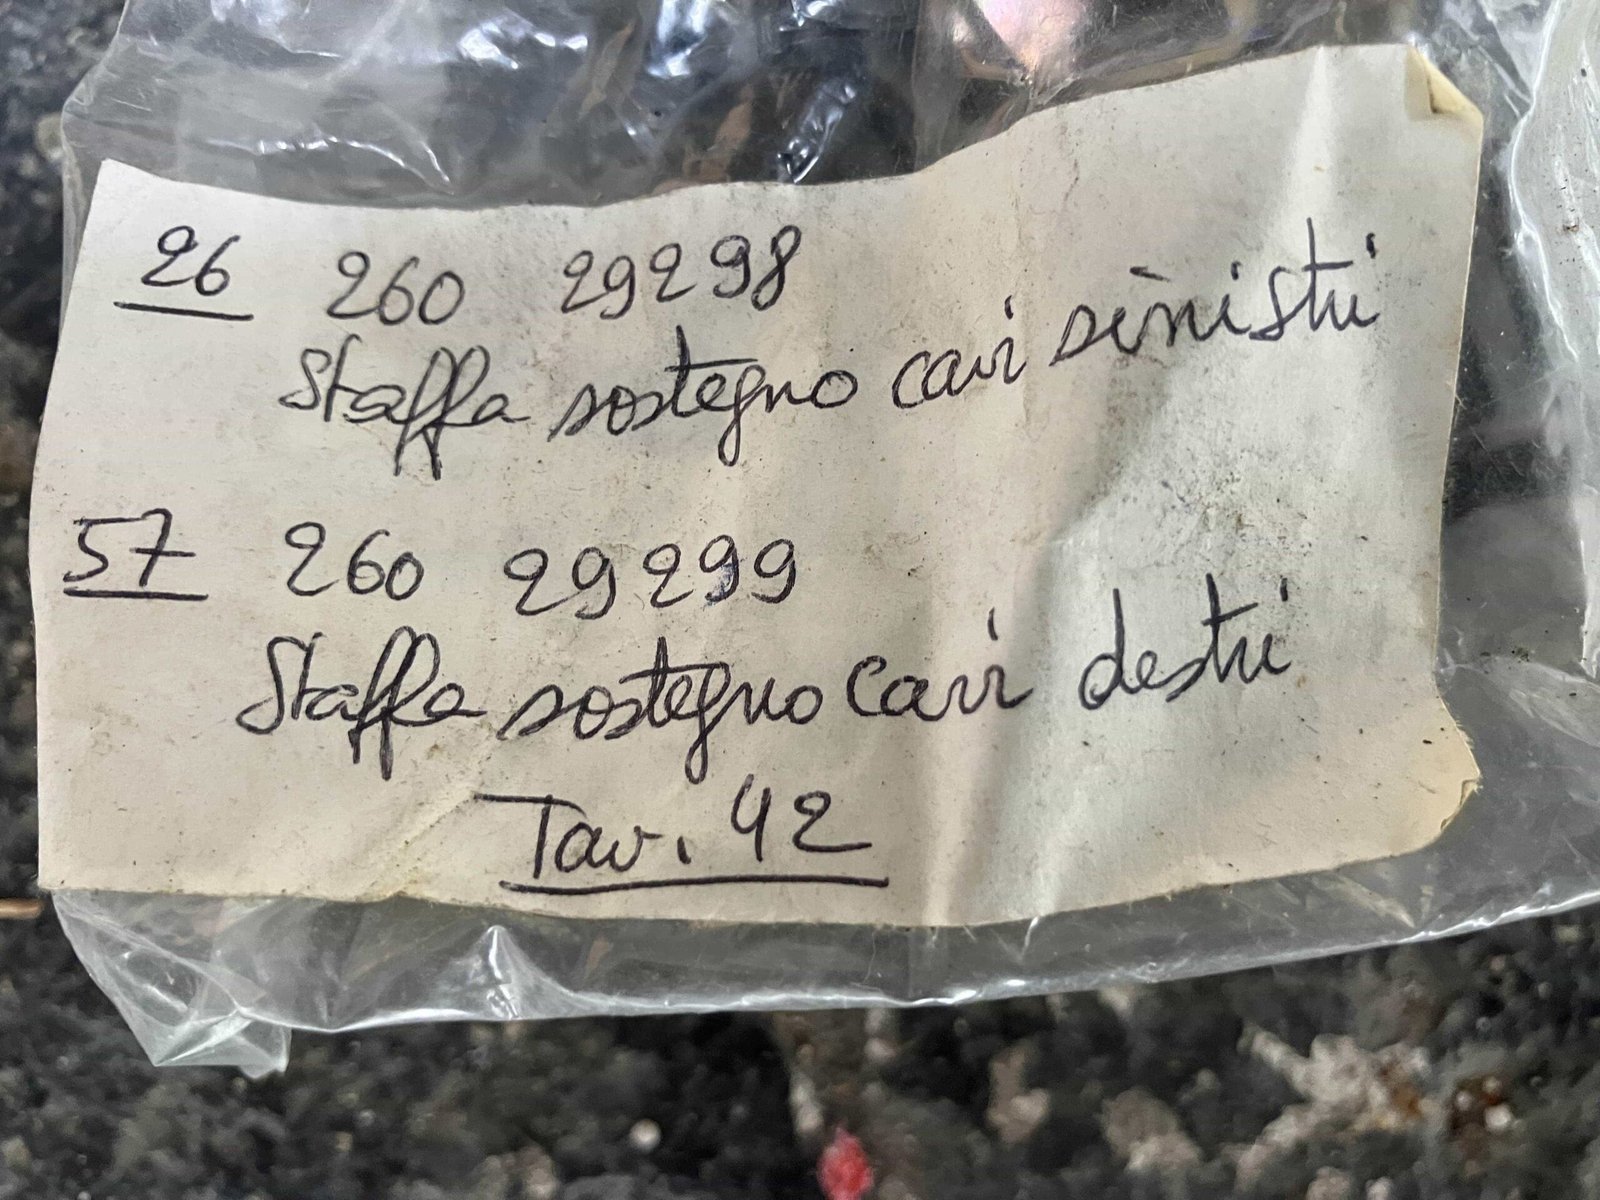 26 260 29298
Staffa sostegno cavi sinistri
57 260 29299
Staffa sostegno cavi destri
Tav. 42